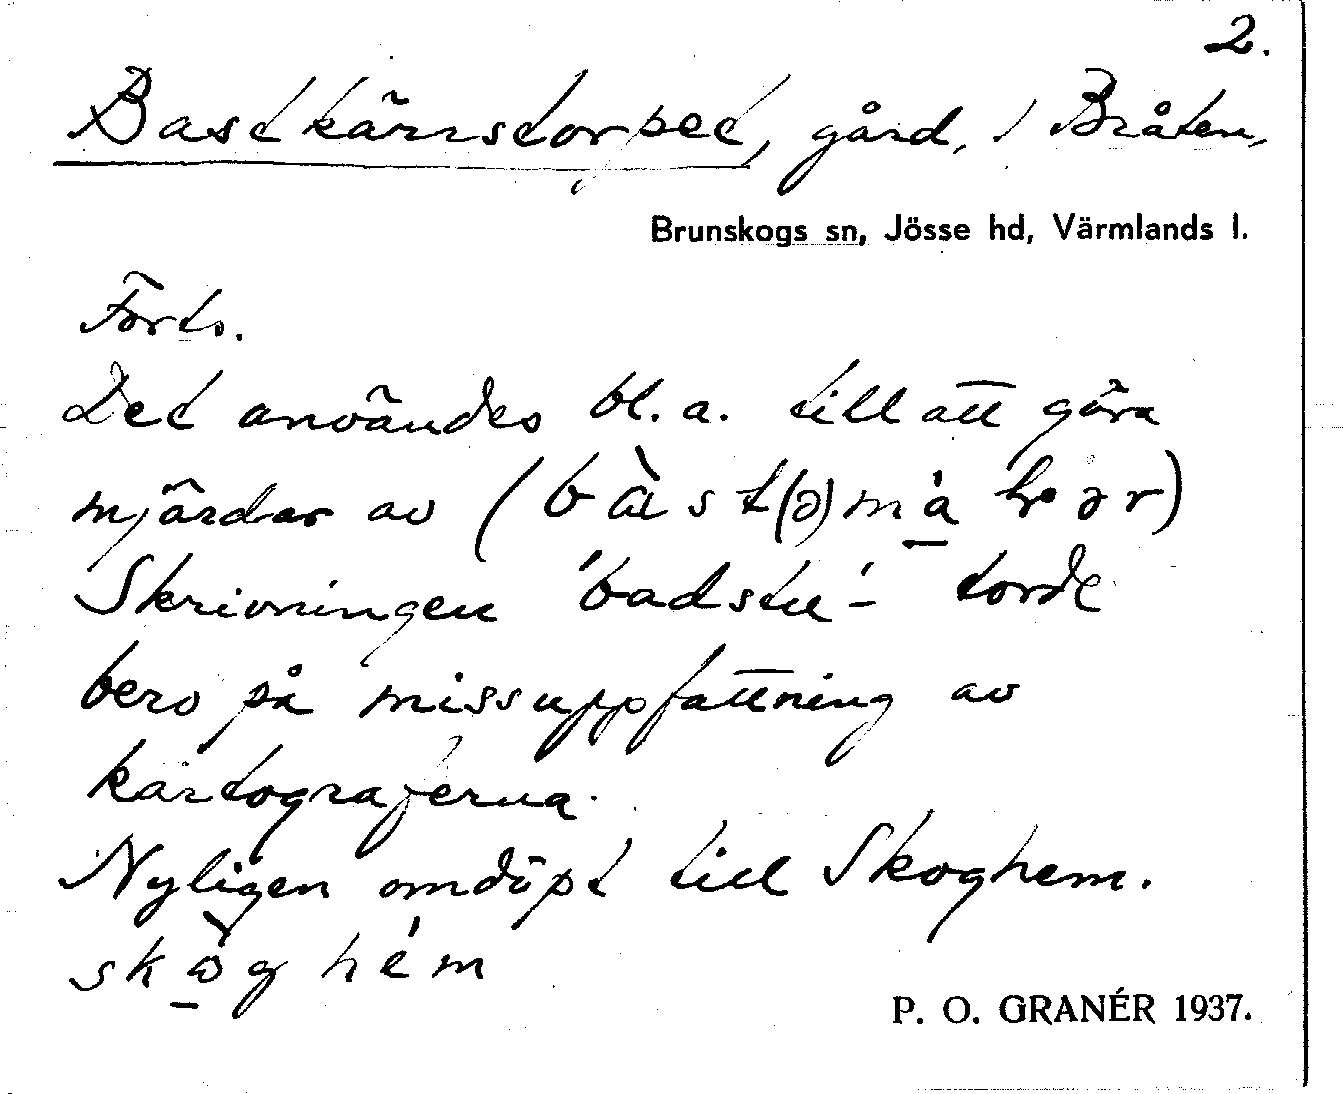 2.
Bastkärrstorpet, gård, / Bråten,
Brunskogs sn, Jösse hd, Värmlands l.
Forts.
Det användes bl. a. till att göra
mjärdar av (bàst(ə)
Skrivningen 'badstu'- torde
bero på missuppfattning av
kartograferna.
Nyligen omdöpt till Skoghem.
skòghém
P. O. GRANÉR 1937.